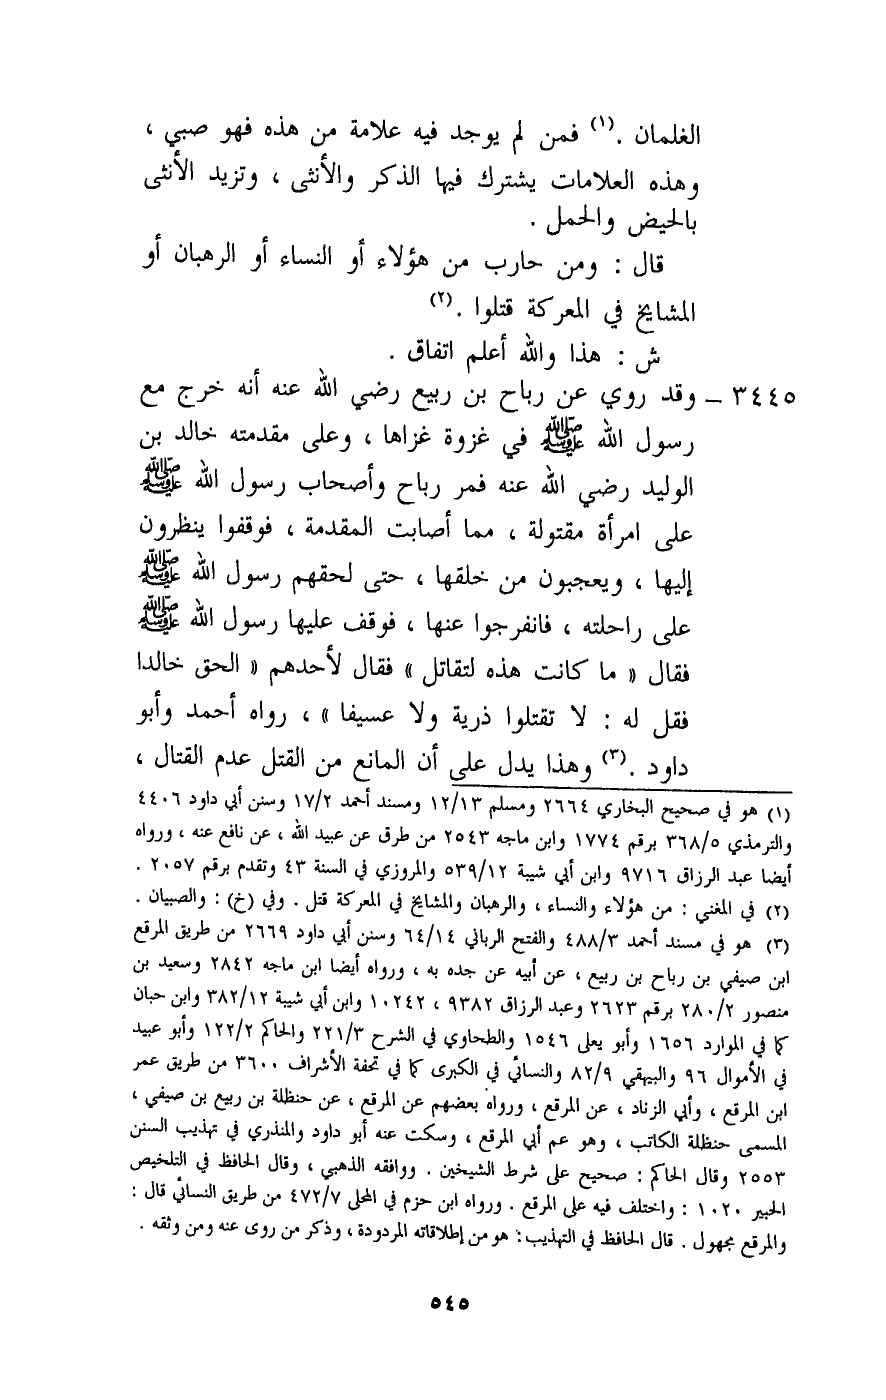 الغلمان .(١) فمن لم يوجد فيه علامة من هذه فهو صبي ،
وهذه العلامات يشترك فيها الذكر والأنثى ، وتزيد الأنثى
بالحيض والحمل .
قال : ومن حارب من هؤلاء أو النساء أو الرهبان أو
المشايخ في المعركة قتلوا .(٢)
ش : هذا والله أعلم اتفاق .
٣٤٤٥ – وقد روي عن رباح بن ربيع رضي الله عنه أنه خرج مع
رسول الله ﷺ في غزوة غزاها ، وعلى مقدمته خالد بن
الوليد رضي الله عنه فمر رباح وأصحاب رسول الله ﷺ
على امرأة مقتولة ، مما أصابت المقدمة ، فوقفوا ينظرون
إليها ، ويعجبون من خلقها ، حتى لحقهم رسول الله ﷺ
على راحلته ، فانفرجوا عنها ، فوقف عليها رسول الله ﷺ
فقال « ما كانت هذه لتقاتل » فقال لأحدهم « الحق خالدا
فقل له : لا تقتلوا ذرية ولا عسيفا » ، رواه أحمد وأبو
داود .(٣) وهذا يدل على أن المانع من القتل عدم القتال ،
(١) هو في صحيح البخاري ٢٦٦٤ ومسلم ١٢/١٣ ومسند أحمد ١٧/٢ وسنن أبي داود ٤٤٠٦
والترمذي ٣٦٨/٥ برقم ١٧٧٤ وابن ماجه ٢٥٤٣ من طرق عن عبيد الله ، عن نافع عنه ، ورواه
أيضا عبد الرزاق ٩٧١٦ وابن أبي شيبة ٥٣٩/١٢ والمروزي في السنة ٤٣ وتقدم برقم ٢٠٥٧ .
(٢) في المغني : من هؤلاء والنساء ، والرهبان والمشايخ في المعركة قتل . وفي (خ) : والصبيان .
(٣) هو في مسند أحمد ٤٨٨/٣ والفتح الرباني ٦٤/١٤ وسنن أبي داود ٢٦٦٩ من طريق المرقع
ابن صيفي بن رباح بن ربيع ، عن أبيه عن جده به ، ورواه أيضا ابن ماجه ٢٨٤٢ وسعيد بن
منصور ٢٨٠/٢ برقم ٢٦٢٣ وعبد الرزاق ٩٣٨٢ ، ١٠٢٤٢ وابن أبي شيبة ٣٨٢/١٢ وابن حبان
كما في الموارد ١٦٥٦ وأبو يعلى ١٥٤٦ والطحاوي في الشرح ٢٢١/٣ والحاكم ١٢٢/٢ وأبو عبيد
في الأموال ٩٦ والبيهقي ٨٢/٩ والنسائي في الكبرى كما في تحفة الأشراف ٣٦٠٠ من طريق عمر
ابن المرقع ، وأبي الزناد ، عن المرقع ، ورواه بعضهم عن المرقع ، عن حنظلة بن ربيع بن صيفي ،
المسمى حنظلة الكاتب ، وهو عم أبي المرقع ، وسكت عنه أبو داود والمنذري في تهذيب السنن
٢٥٥٣ وقال الحاكم : صحيح على شرط الشيخين . ووافقه الذهبي ، وقال الحافظ في التلخيص
الحبير ١٠٢٠ : واختلف فيه على المرقع . ورواه ابن حزم في المحلى ٤٧٢/٧ من طريق النسائي قال :
والمرقع مجهول . قال الحافظ في التهذيب : هو من إطلاقاته المردودة ، وذكر من روى عنه ومن وثقه .
٥٤٥